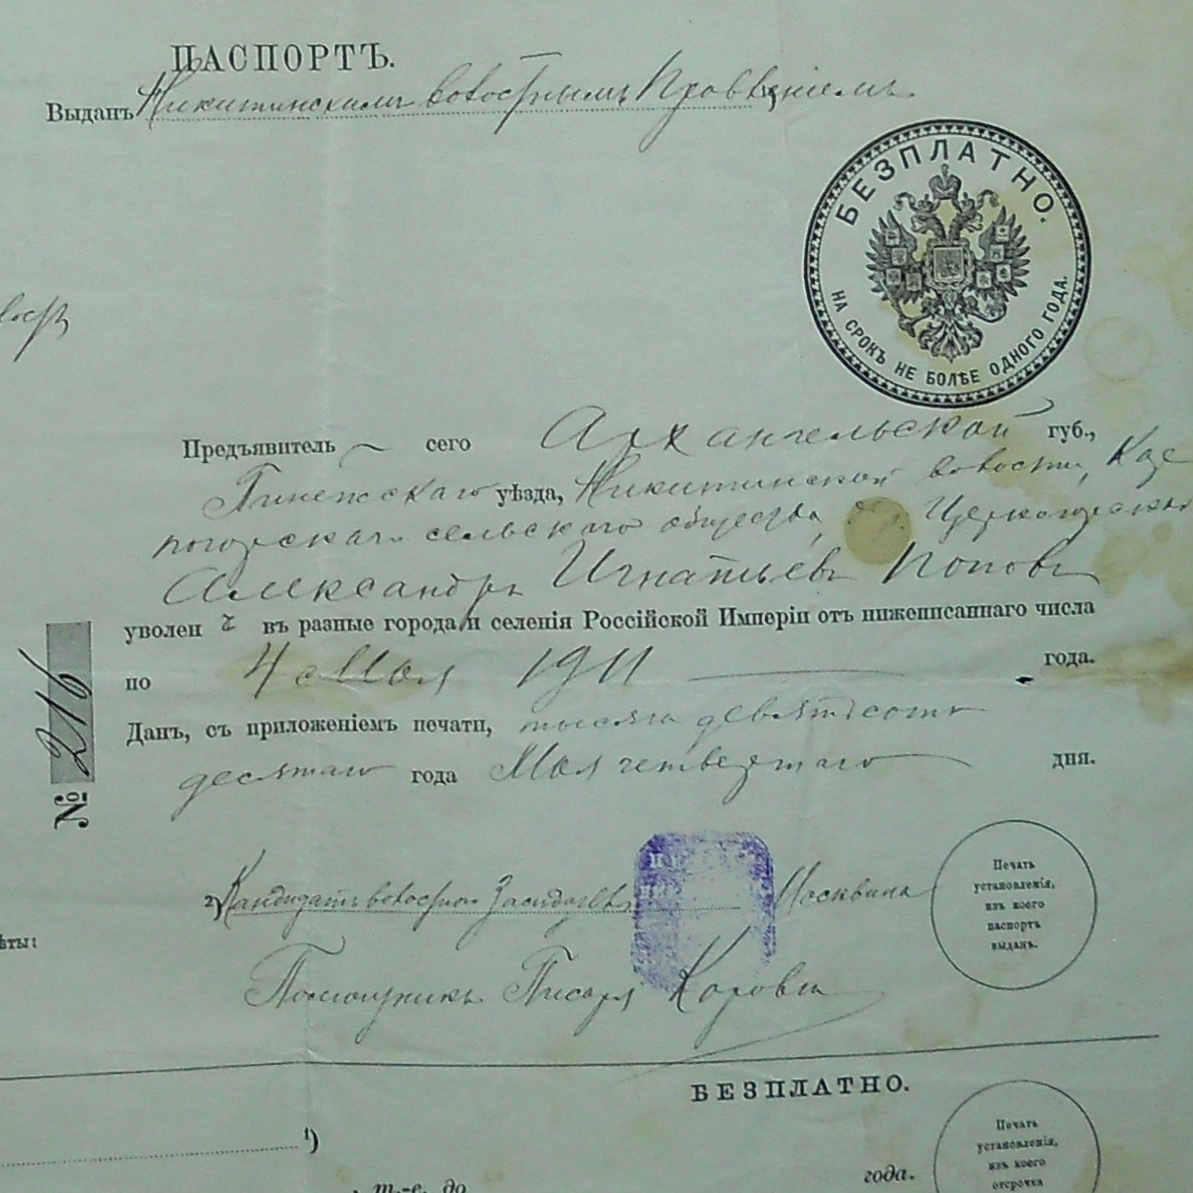 ПАСПОРТЪ.
Выданъ Никитинскимъ волостнымъ Правленіемъ
БЕЗПЛАТНО.
НА СРОКЪ НЕ БОЛѢЕ ОДНОГО ГОДА.
Предъявитель сего Архангельской губ.,
Пинежскаго уѣзда, Никитинской волости, Кае
погорскаго сельскаго общества, Церкогорской
Александръ Игнатьевъ Поповъ
уволенъ въ разные города и селенія Россійской Имперіи отъ нижеписаннаго числа
по 4 Мая 1911 года.
Данъ, съ приложеніемъ печати, тысяча девятьсотъ
десятаго года Мая четвертаго дня.
№ 216
2) Кандидатъ волостного Засѣдателя Москвинъ
Помощникъ Писаря Коровинъ
Печать
установленія,
изъ коего
паспортъ
выданъ.
ѣты:
БЕЗПЛАТНО.
1)
Печать
установленія,
изъ коего
отсрочка
года.
т.-е. до